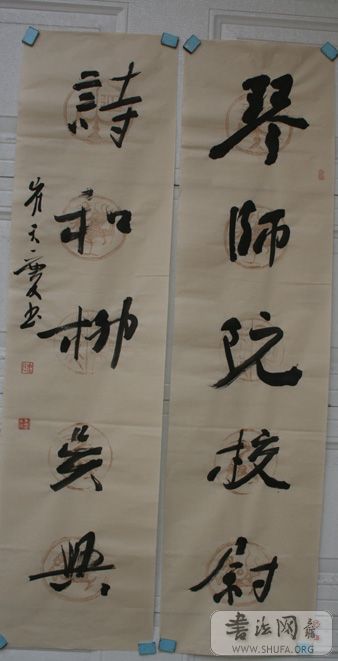 琴師阮校尉
詩和柳吳興
書法网
WWW.SHUFA.ORG